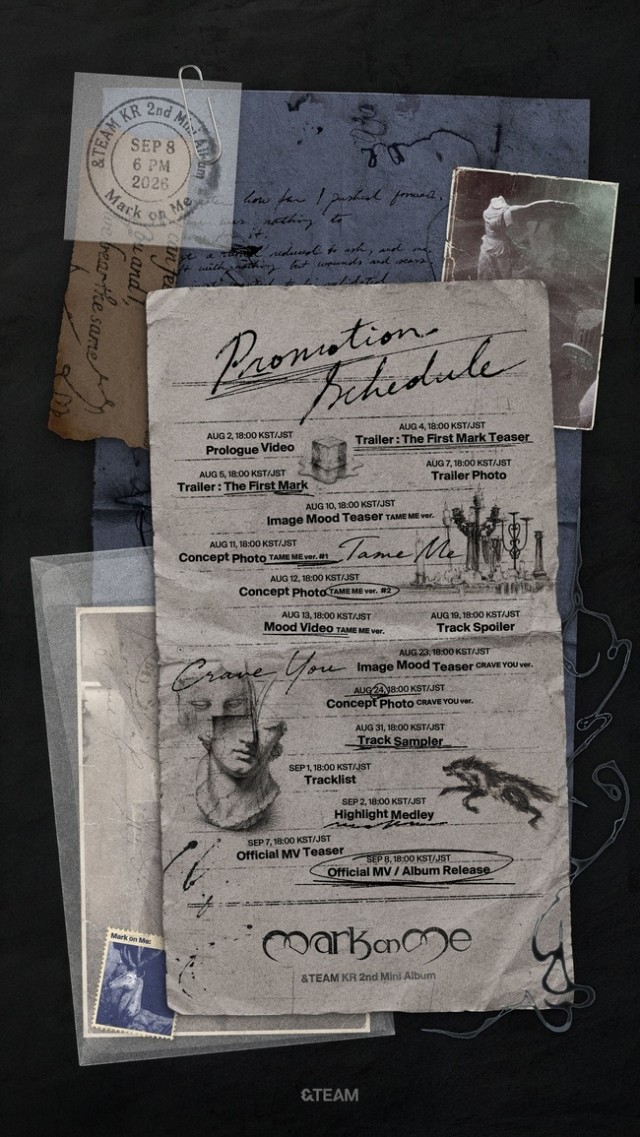 &TEAM KR 2nd Mini Album
SEP 8
6 PM
2026
Mark on Me
how far I pushed forward,
nothing to
it.
reduced to ash, and
with nothing but wounds and scars.
Promotion
Schedule
AUG 2, 18:00 KST/JST
Prologue Video
AUG 4, 18:00 KST/JST
Trailer : The First Mark Teaser
AUG 5, 18:00 KST/JST
Trailer : The First Mark
AUG 7, 18:00 KST/JST
Trailer Photo
AUG 10, 18:00 KST/JST
Image Mood Teaser TAME ME ver.
AUG 11, 18:00 KST/JST
Concept Photo TAME ME ver. #1
Tame Me
AUG 12, 18:00 KST/JST
Concept Photo TAME ME ver. #2
AUG 13, 18:00 KST/JST
Mood Video TAME ME ver.
AUG 19, 18:00 KST/JST
Track Spoiler
Crave You
AUG 23, 18:00 KST/JST
Image Mood Teaser CRAVE YOU ver.
AUG 24, 18:00 KST/JST
Concept Photo CRAVE YOU ver.
AUG 31, 18:00 KST/JST
Track Sampler
SEP 1, 18:00 KST/JST
Tracklist
SEP 2, 18:00 KST/JST
Highlight Medley
SEP 7, 18:00 KST/JST
Official MV Teaser
SEP 8, 18:00 KST/JST
Official MV / Album Release
Mark on Me
&TEAM KR 2nd Mini Album
Mark on Me:
&TEAM